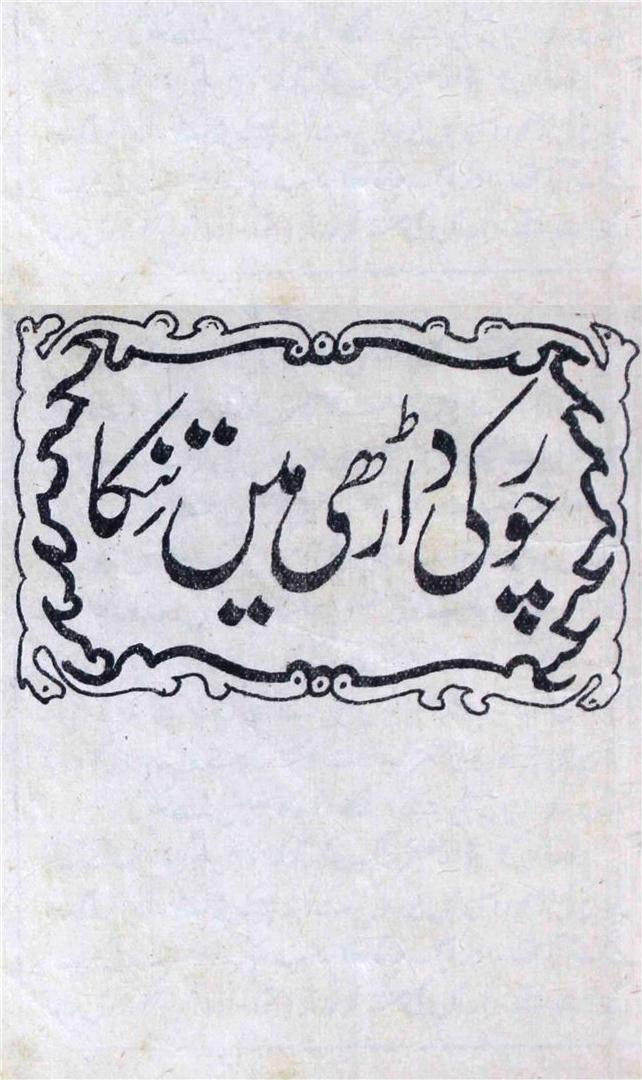 چور کی داڑھی میں تنکا